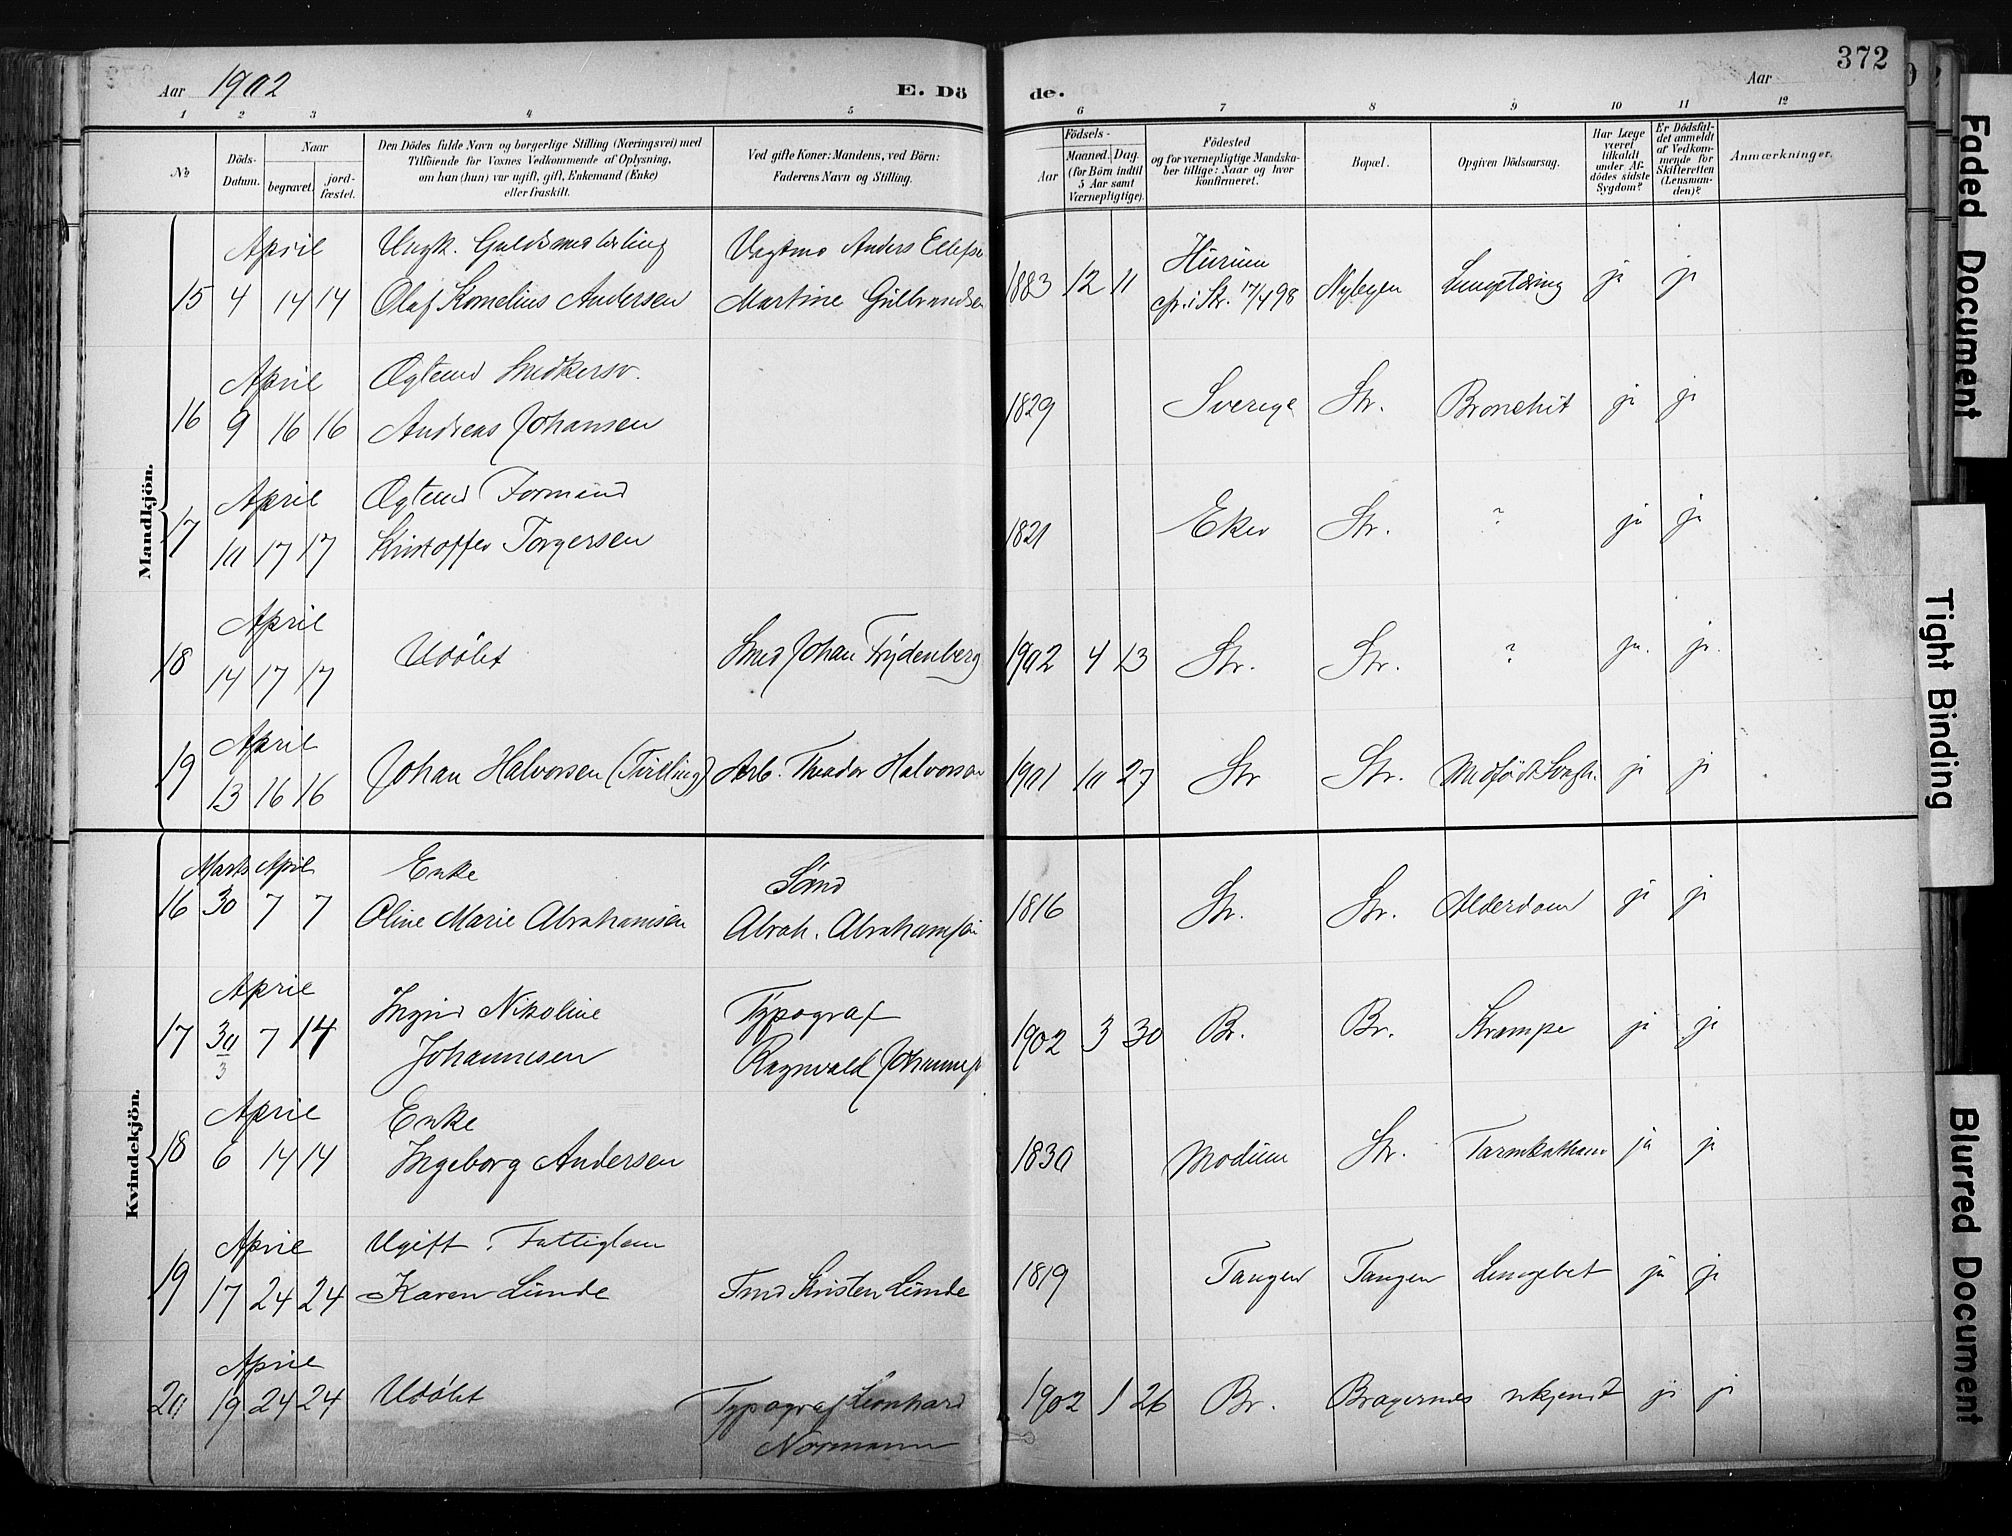 372
Aar 1902 E. Dö de. Aar
1 2 3 4 5 6 7 8 9 10 11 12
№
Döds-Datum.
Naar
begravet.
jord-fæstet.
Den Dödes fulde Navn og borgerlige Stilling (Næringsvei) med
Tilföiende for Voxnes Vedkommende af Oplysning,
om han (hun) var ugift, gift, Enkemand (Enke)
eller fraskilt.
Ved gifte Koner: Mandens, ved Börn:
Faderens Navn og Stilling.
Födsels-
Aar
Maaned. Dag.
(for Börn indtil
5 Aar samt
Værnepligtige).
Födested
og for værnepligtige Mandska-
ber tillige: Naar og hvor
konfirmeret.
Bopæl.
Opgiven Dödsaarsag.
Har Læge
været
tilkaldt
under Af-
dödes sidste
Sygdom?
Er Dödsfal-
det anmeldt
af Vedkom-
mende for
Skifteretten
(Lensman-
den)?
Anmærkninger.
Mandkjön.
April Ungk. Guldsmedlærling Anders Ellefse Hurum
15 4 14 14 Olaf Kornelius Andersen Martine Gulbrandsen 1883 12 11 i Str. 17/4 98 Nybyen ja ja
April Ægtemd
16 9 16 16 Andreas Johansen 1829 Sverige Str. Bronchit ja ja
April Ægtemd Formand
17 10 17 17 Kristoffer Torgersen 1821 Eker Str. ? ja ja
April
18 14 17 17 Udöbt Smed Johan Frydenberg 1902 4 13 Str. Str. ? ja. ja.
April
19 13 16 16 Johan Halvorsen (Tvilling) Arb. Theodor Halvorsen 1901 10 27 Str Str. Medfødt Svagh. ja ja
Kvindekjön.
Marts April Enke
16 30 7 7 Oline Marie Abrahamsen Abrah. Abrahamsen 1816 Str. Str. Alderdom ja ja
April Ingrid Nikoline Typograf
17 30/3 7 14 Johannesen Ragnvald Johannes 1902 3 30 Br. Br. Krampe ja ja
April Enke
18 6 14 14 Ingeborg Andersen 1830 Modum Str. Tarmkatharr ja ja
April Ugift. Fattiglem
19 17 24 24 Karen Lunde Kristen Lunde 1819 Tangen Tangen Lungebet ja ja
April
20 19 24 24 Udöbt Typograf Leonhard 1902 1 26 Br. Bragernes ukjendt ja ja
Normann
Faded Document
Tight Binding
Blurred Document